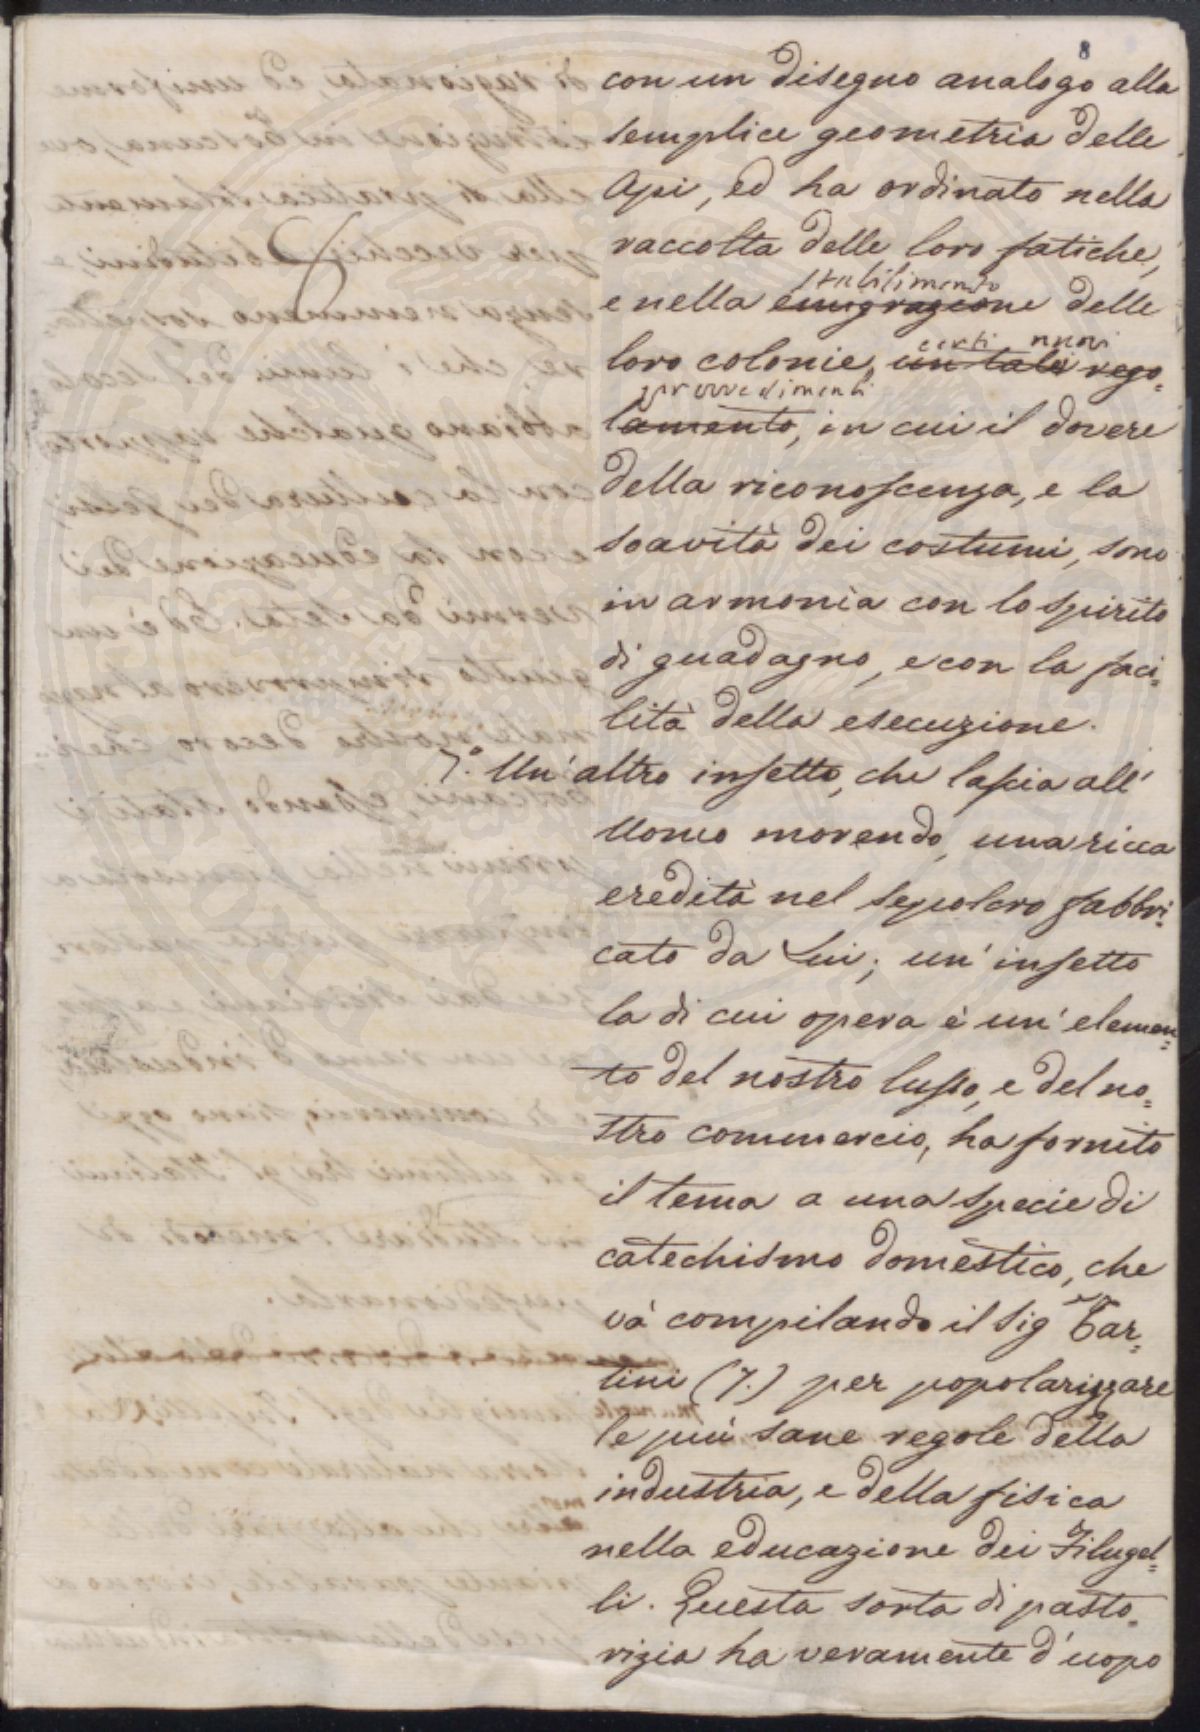 8
con un disegno analogo alla
semplice geometria delle
Api, ed ha ordinato nella
raccolta delle loro fatiche,
stabilimento
e nella emigrazione delle
certi nuovi
loro colonie, un tale rego=
provvedimenti
lamento, in cui il dovere
della riconoscenza, e la
soavità dei costumi, sono
in armonia con lo spirito
di guadagno, e con la faci=
lità della esecuzione.
7.° Un' altro insetto, che lascia all'
Uomo morendo, una ricca
eredità nel sepolcro fabbri=
cato da Lui; un' insetto
la di cui opera è un' elemen=
to del nostro lusso, e del no=
stro commercio, ha fornito
il tema a una specie di
catechismo domestico, che
và compilando il Sig Tar=
tini (7.) per popolarizzare
le più sane regole della
industria, e della fisica
nella educazione dei Filugel=
li. Questa sorta di pasto=
rizia ha veramente d'uopo